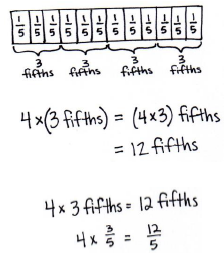 1/5 1/5 1/5 1/5 1/5 1/5 1/5 1/5 1/5 1/5 1/5 1/5
3 fifths 3 fifths 3 fifths 3 fifths
4 x (3 fifths) = (4x3) fifths
= 12 fifths
4 x 3 fifths = 12 fifths
4 x 3/5 = 12/5